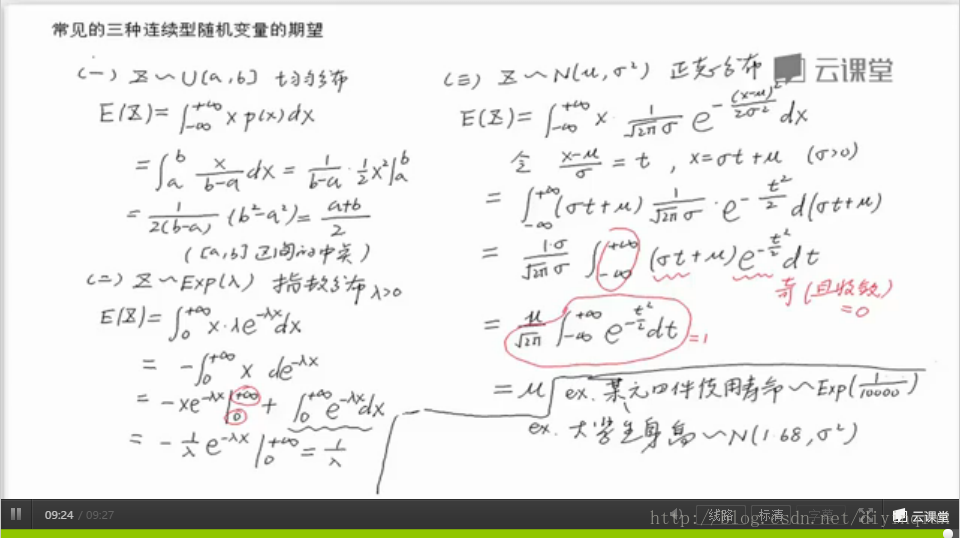 常见的三种连续型随机变量的期望
云课堂
(一) X ~ U[a,b] 均匀分布
E(X) = ∫_{-∞}^{+∞} x p(x) dx
= ∫_a^b x/(b-a) dx = 1/(b-a) · 1/2 x² |_a^b
= 1/(2(b-a)) (b²-a²) = (a+b)/2
([a,b] 区间的中点)
(二) X ~ Exp(λ) 指数分布 λ>0
E(X) = ∫_0^{+∞} x·λe^{-λx} dx
= -∫_0^{+∞} x de^{-λx}
= -xe^{-λx} |_0^{+∞} + ∫_0^{+∞} e^{-λx} dx
= -1/λ e^{-λx} |_0^{+∞} = 1/λ
(三) X ~ N(μ, σ²) 正态分布
E(X) = ∫_{-∞}^{+∞} x · 1/(√2π σ) e^{-(x-μ)²/2σ²} dx
令 (x-μ)/σ = t , x=σt+μ (σ>0)
= ∫_{-∞}^{+∞} (σt+μ) 1/(√2π σ) · e^{-t²/2} d(σt+μ)
= 1·σ/(√2π σ) ∫_{-∞}^{+∞} (σt+μ) e^{-t²/2} dt
奇(且收敛)
=0
= μ/√2π ∫_{-∞}^{+∞} e^{-t²/2} dt =1
= μ
ex. 某元件使用寿命 ~ Exp(1/10000)
ex. 大学生身高 ~ N(1.68, σ²)
09:24 / 09:27
线路 标清 字幕
云课堂